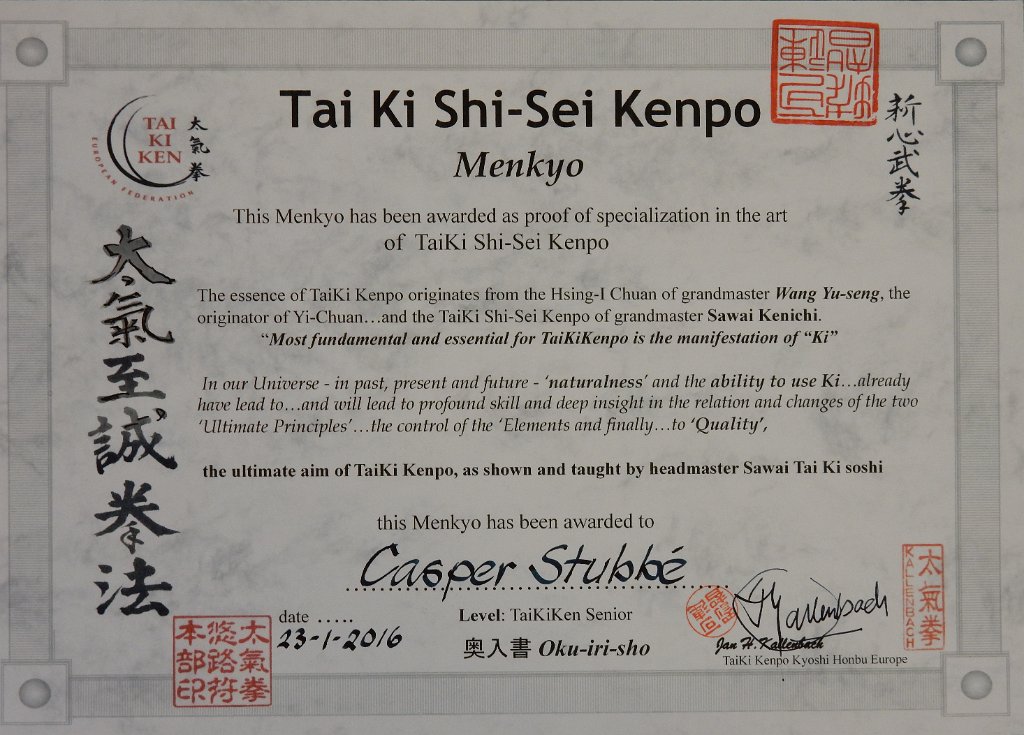 Tai Ki Shi-Sei Kenpo
Menkyo
TAI
KI
KEN
太氣拳
EUROPEAN FEDERATION
新心武拳
太氣至誠拳法
This Menkyo has been awarded as proof of specialization in the art
of TaiKi Shi-Sei Kenpo
The essence of TaiKi Kenpo originates from the Hsing-I Chuan of grandmaster Wang Yu-seng, the
originator of Yi-Chuan…and the TaiKi Shi-Sei Kenpo of grandmaster Sawai Kenichi.
“Most fundamental and essential for TaiKiKenpo is the manifestation of “Ki”
In our Universe - in past, present and future - ‘naturalness’ and the ability to use Ki…already
have lead to…and will lead to profound skill and deep insight in the relation and changes of the two
‘Ultimate Principles’…the control of the ‘Elements and finally…to ‘Quality’,
the ultimate aim of TaiKi Kenpo, as shown and taught by headmaster Sawai Tai Ki soshi
this Menkyo has been awarded to
Casper Stubbé
date …..
23-1-2016
Level: TaiKiKen Senior
奥入書 Oku-iri-sho
JHKallenbach
Jan H. Kallenbach
TaiKi Kenpo Kyoshi Honbu Europe
太氣拳
KALLENBACH
太氣拳
悠路符
本部印